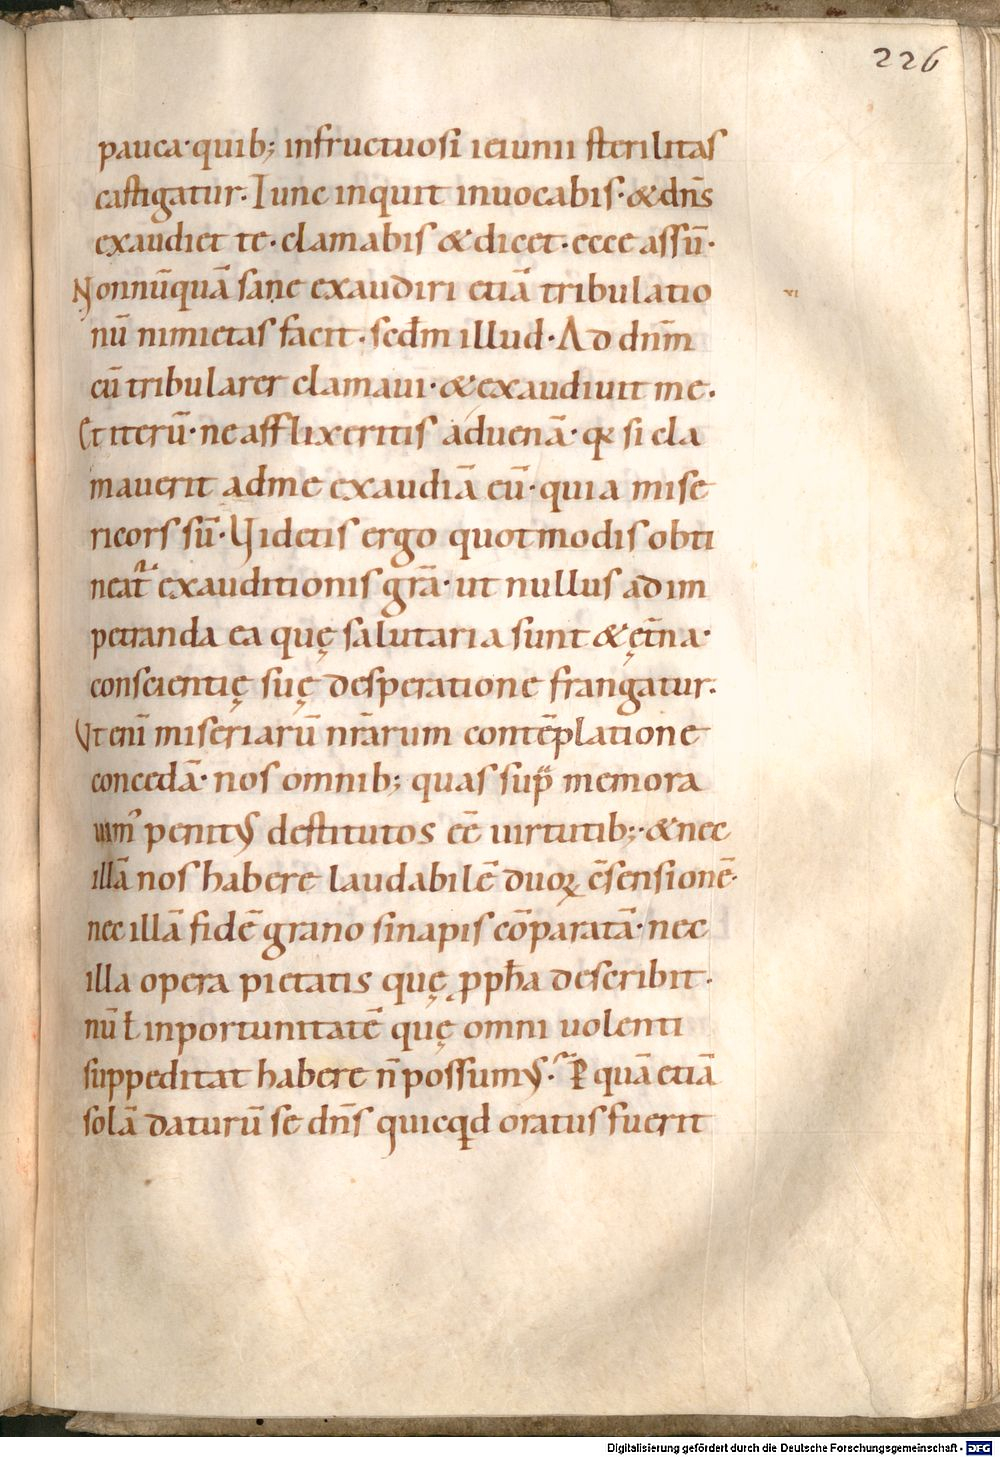 226
pauca· quib; infructuosi ieiunii sterilitas
castigatur· Tunc inquit inuocabis· & dn̄s
exaudiet te· clamabis & dicet· ecce assū·
Nonnūquā sane exaudiri etiā tribulatio
vi
nū nimietas facit· scdm̄ illud· Ad dnm̄
cū tribularer clamaui· & exaudiuit me·
Et iterū· ne afflixeritis aduenā· qꝛ si cla
mauerit ad me exaudiā eū· quia mise
ricors sū· Videtis ergo quot modis obti
neat᷑ exauditionis gr̄a· ut nullus ad im
petranda ea quę salutaria sunt & ęt̄na·
conscientię suę desperatione frangatur·
Vt eni̅ miseriarū nr̄arum contēplatione
concedā· nos omnib; quas sup̄ memora
uim᷒ penitꝰ destitutos eē uirtutib;· & nec
illā nos habere laudabilē duoꝝ ēsensionē·
nec illā fidē grano sinapis cōparatā· nec
illa opera pietatis quę ꝓpħa describit·
nū ł inportunitatē quę omni uolenti
suppeditat habere n̄ possumꝰ· P̲ quā etiā
solā daturū se dn̄s quicqd oratus fuerit
Digitalisierung gefördert durch die Deutsche Forschungsgemeinschaft - DFG